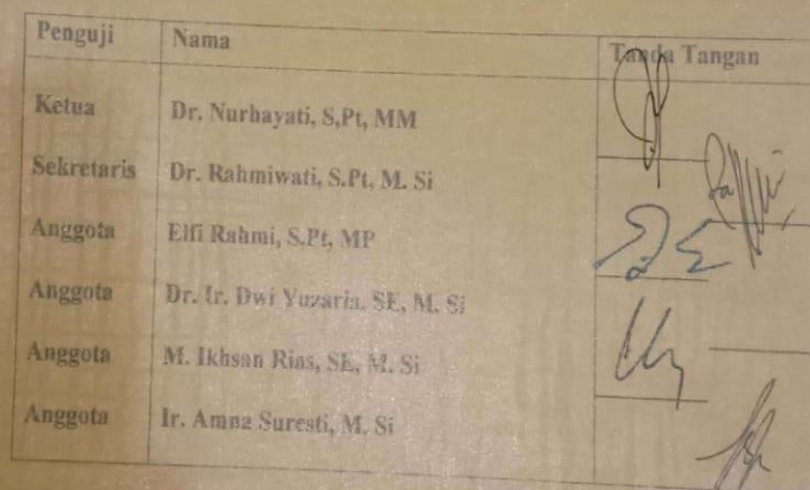 Penguji Nama Tanda Tangan
Ketua Dr. Nurhayati, S,Pt, MM
Sekretaris Dr. Rahmiwati, S.Pt, M. Si
Anggota Elfi Rahmi, S.Pt, MP
Anggota Dr. Ir. Dwi Yuzaria, SE, M. Si
Anggota M. Ikhsan Rias, SE, M. Si
Anggota Ir. Amna Suresti, M. Si